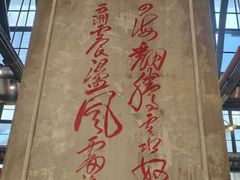 四海翻腾云水怒
五洲震荡风雷激